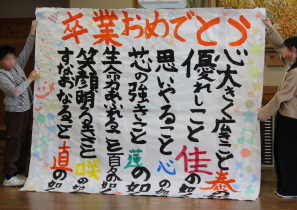 卒業おめでとう
心大きく広きこと泰の如
優れしこと佳の如
思いやること心の如
芯の強きこと蓮の如
生命あふれること の如
笑顔明るきこと咲の如
すなおなること直の如